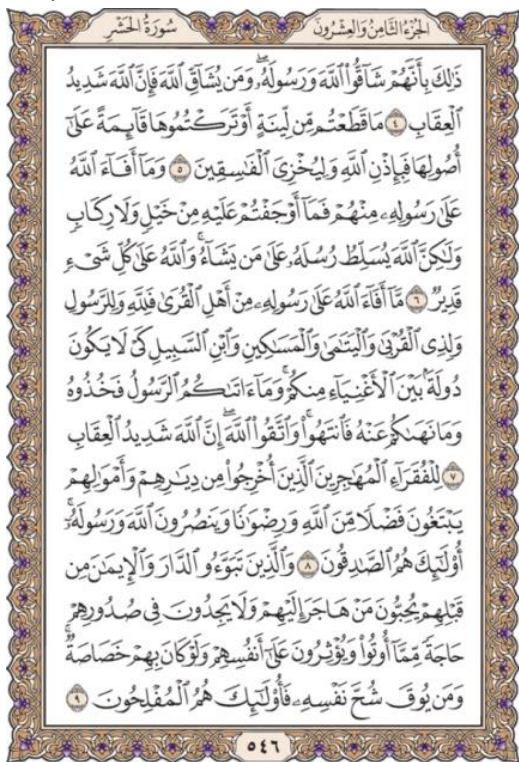 الجزء الثامن والعشرون سورة الحشر
ذَٰلِكَ بِأَنَّهُمْ شَآقُّوا۟ ٱللَّهَ وَرَسُولَهُۥ ۖ وَمَن يُشَآقِّ ٱللَّهَ فَإِنَّ ٱللَّهَ شَدِيدُ
ٱلْعِقَابِ ٤ مَا قَطَعْتُم مِّن لِّينَةٍ أَوْ تَرَكْتُمُوهَا قَآئِمَةً عَلَىٰٓ
أُصُولِهَا فَبِإِذْنِ ٱللَّهِ وَلِيُخْزِىَ ٱلْفَـٰسِقِينَ ٥ وَمَآ أَفَآءَ ٱللَّهُ
عَلَىٰ رَسُولِهِۦ مِنْهُمْ فَمَآ أَوْجَفْتُمْ عَلَيْهِ مِنْ خَيْلٍ وَلَا رِكَابٍ
وَلَـٰكِنَّ ٱللَّهَ يُسَلِّطُ رُسُلَهُۥ عَلَىٰ مَن يَشَآءُ ۚ وَٱللَّهُ عَلَىٰ كُلِّ شَىْءٍ
قَدِيرٌ ٦ مَّآ أَفَآءَ ٱللَّهُ عَلَىٰ رَسُولِهِۦ مِنْ أَهْلِ ٱلْقُرَىٰ فَلِلَّهِ وَلِلرَّسُولِ
وَلِذِى ٱلْقُرْبَىٰ وَٱلْيَتَـٰمَىٰ وَٱلْمَسَـٰكِينِ وَٱبْنِ ٱلسَّبِيلِ كَىْ لَا يَكُونَ
دُولَةًۢ بَيْنَ ٱلْأَغْنِيَآءِ مِنكُمْ ۚ وَمَآ ءَاتَىٰكُمُ ٱلرَّسُولُ فَخُذُوهُ
وَمَا نَهَىٰكُمْ عَنْهُ فَٱنتَهُوا۟ ۚ وَٱتَّقُوا۟ ٱللَّهَ ۖ إِنَّ ٱللَّهَ شَدِيدُ ٱلْعِقَابِ
٧ لِلْفُقَرَآءِ ٱلْمُهَـٰجِرِينَ ٱلَّذِينَ أُخْرِجُوا۟ مِن دِيَـٰرِهِمْ وَأَمْوَٰلِهِمْ
يَبْتَغُونَ فَضْلًا مِّنَ ٱللَّهِ وَرِضْوَٰنًا وَيَنصُرُونَ ٱللَّهَ وَرَسُولَهُۥٓ ۚ
أُو۟لَـٰٓئِكَ هُمُ ٱلصَّـٰدِقُونَ ٨ وَٱلَّذِينَ تَبَوَّءُو ٱلدَّارَ وَٱلْإِيمَـٰنَ مِن
قَبْلِهِمْ يُحِبُّونَ مَنْ هَاجَرَ إِلَيْهِمْ وَلَا يَجِدُونَ فِى صُدُورِهِمْ
حَاجَةً مِّمَّآ أُوتُوا۟ وَيُؤْثِرُونَ عَلَىٰٓ أَنفُسِهِمْ وَلَوْ كَانَ بِهِمْ خَصَاصَةٌ ۚ
وَمَن يُوقَ شُحَّ نَفْسِهِۦ فَأُو۟لَـٰٓئِكَ هُمُ ٱلْمُفْلِحُونَ ٩
٥٤٦